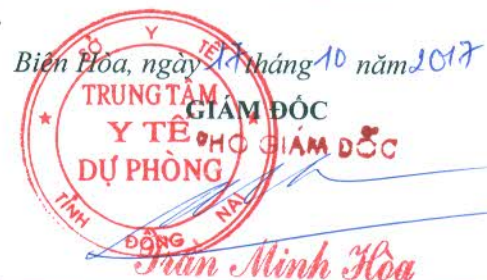 Biên Hòa, ngày 17 tháng 10 năm 2017
GIÁM ĐỐC
PHÓ GIÁM ĐỐC
SỞ Y TẾ
TRUNG TÂM
Y TẾ
DỰ PHÒNG
TỈNH ĐỒNG NAI
Trần Minh Hòa